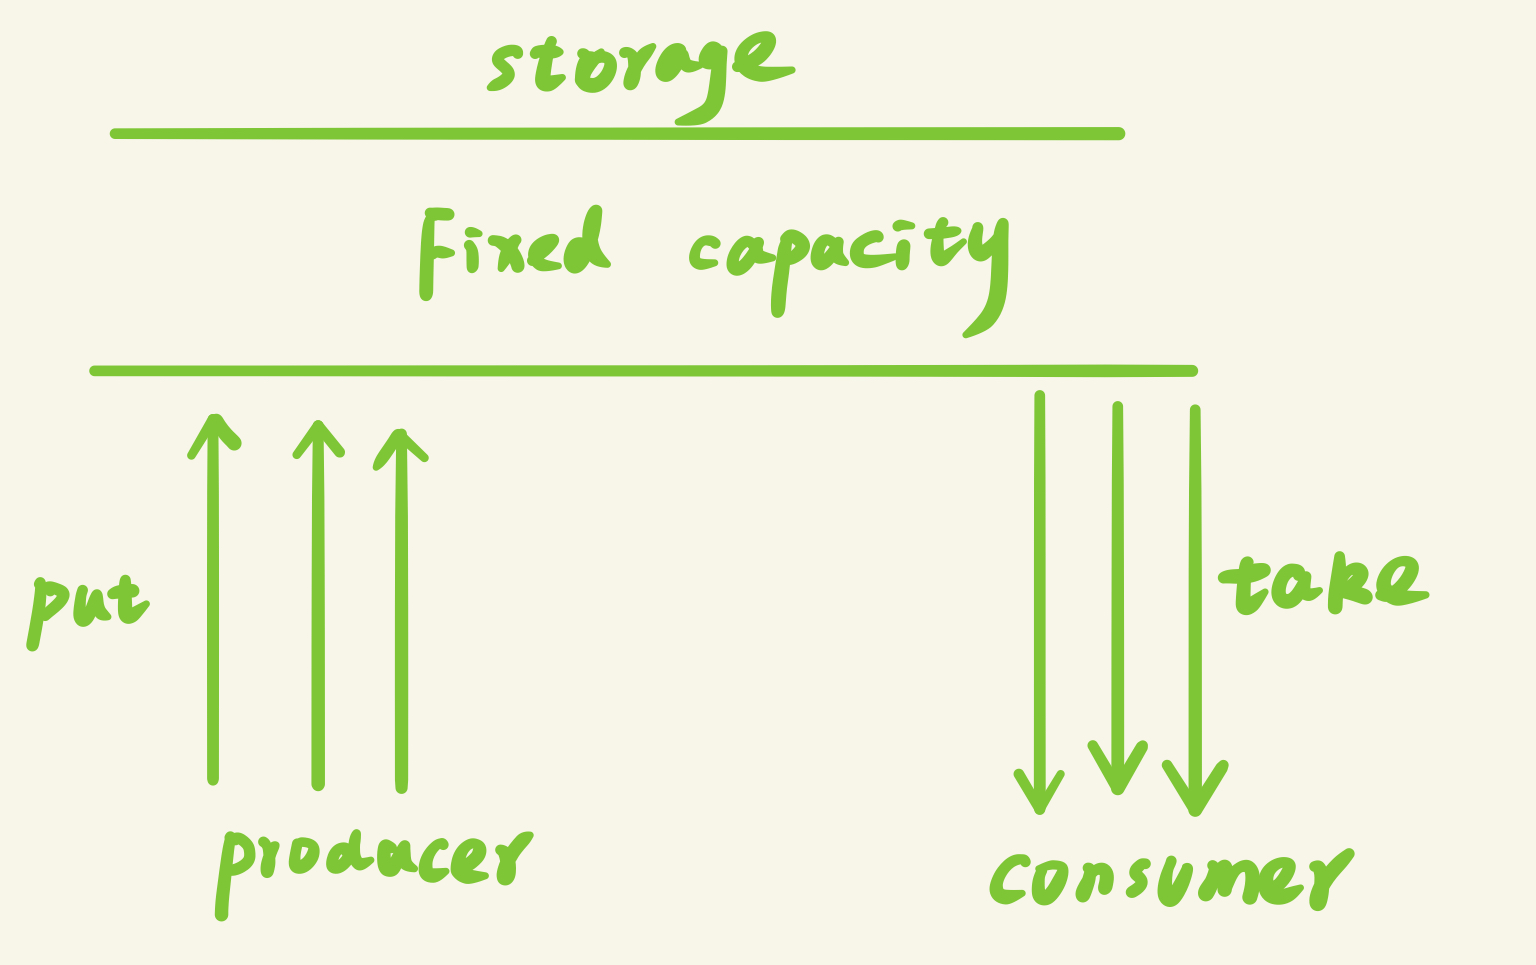 storage
Fixed capacity
put
take
producer
consumer